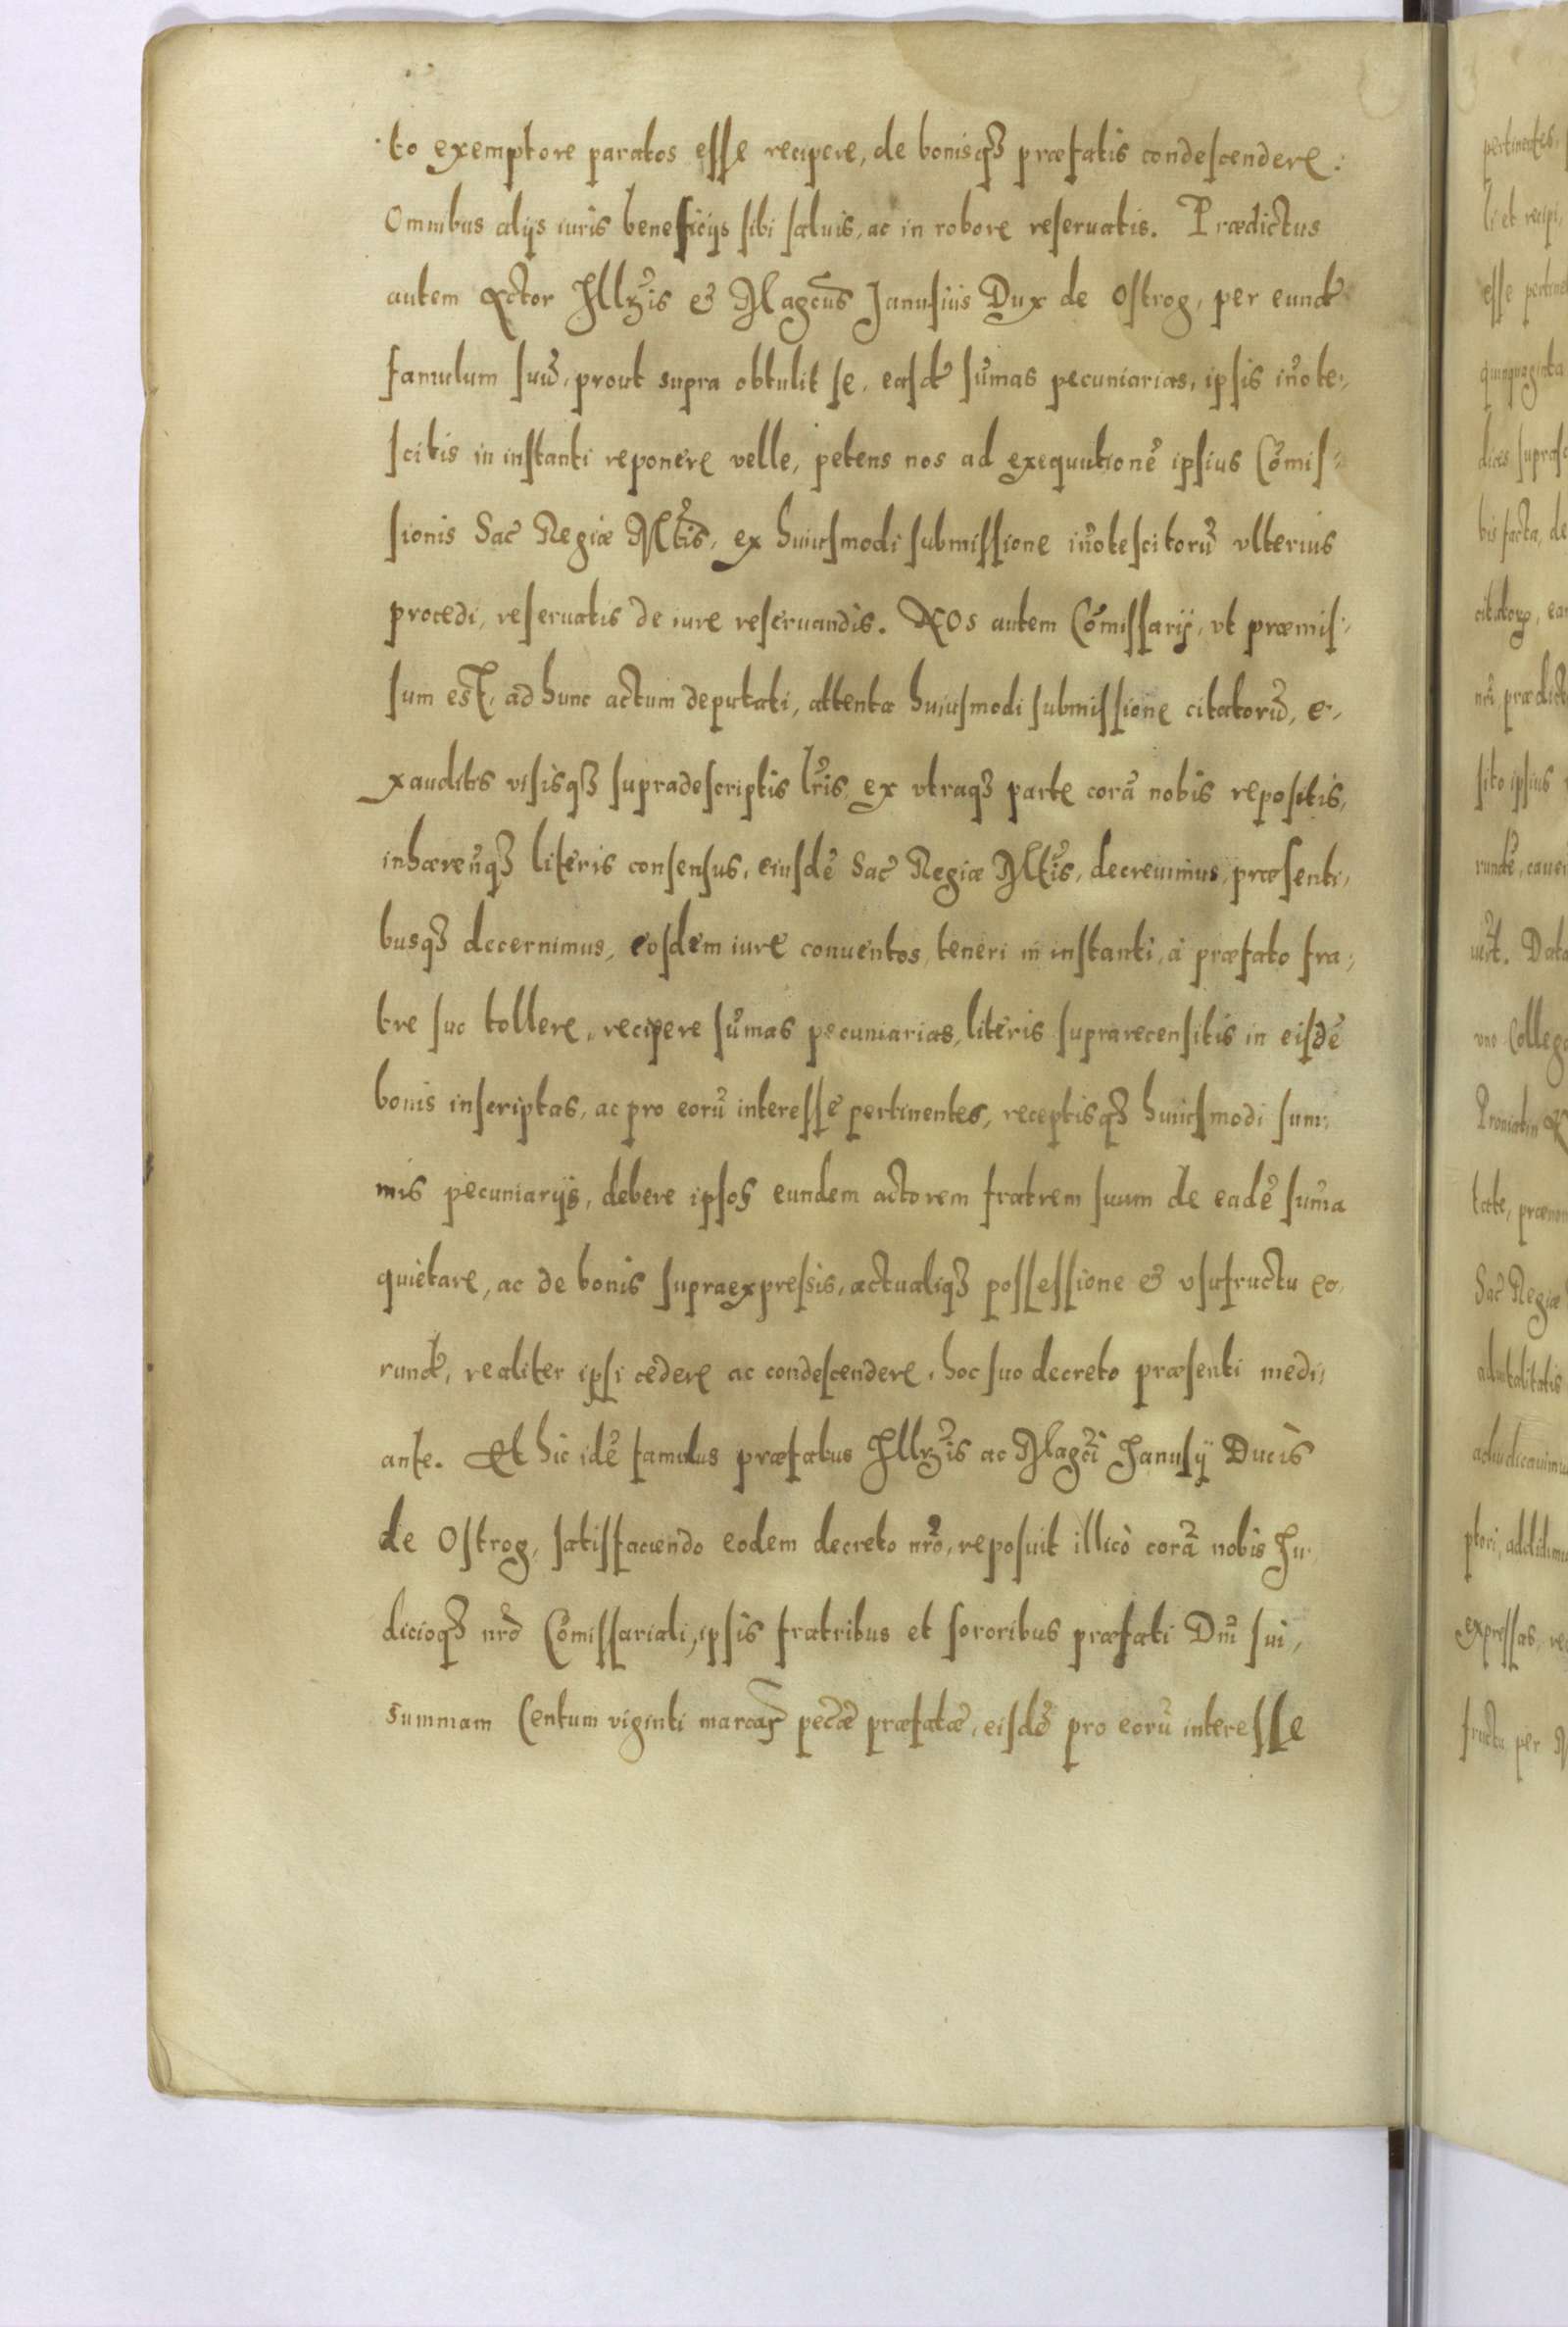 to exemptore paratos esse recipere, de bonisqꝫ præfatis condescendere:
Omnibus alijs iuris beneficijs sibi saluis, ac in robore reseruatis. Prædictus
autem Actor Illꝛis & Magcus Janusius Dux de Ostrog, per eund
famulum suũ, prout supra obtulit se, easd sũmas pecuniarias, ipsis iñote-
scitis in instanti reponere velle, petens nos ad exequutionẽ ipsius Cõmis-
sionis Sac Regiæ Mtis, ex huiusmodi submissione iñotescitorũ vlterius
procedi, reseruatis de iure reseruandis. NOs autem Cõmissarij, vt præmis-
sum est, ad hunc actum deputati, attenta huiusmodi submissione citatorũ, e-
xauditis visisqꝫ supradescriptis lris ex vtraqꝫ parte corã nobis repositis,
inhærenqꝫ literis consensus, eiusdẽ Sac Regiæ Mtis, decreuimus, præsenti-
busqꝫ decernimus, eosdem iure conuentos, teneri in instanti, à præfato fra-
tre suo tollere, recipere sũmas pecuniarias, literis suprarecensitis in eisdẽ
bonis inscriptas, ac pro eorũ interesse pertinentes, receptisqꝫ huiusmodi sum-
mis pecuniarijs, debere ipsos eundem actorem fratrem suum de eadẽ sũma
quietare, ac de bonis supraexpressis, actualiqꝫ possessione & vsufructu eo-
rund, realiter ipsi cedere ac condescendere, hoc suo decreto præsenti medi-
ante. Et hic idẽ famulus præfatus Illꝛis ac Magci Janusij Ducis
de Ostrog, satisfaciendo eodem decreto nro, reposuit illicò corã nobis Ju-
dicioqꝫ nro Cõmissariali, ipsis fratribus et sororibus præfati Dni sui,
summam Centum viginti marcaꝝ pecæ præfatæ, eisdẽ pro eorũ interesse
pertinentes,
li et recipi,
esse
quinquaginta
bis facta, de
sito ipsius
uert.
vno
tate,
Sac Regiæ
aduitalitatis
ptori,
expressas,
fructu per